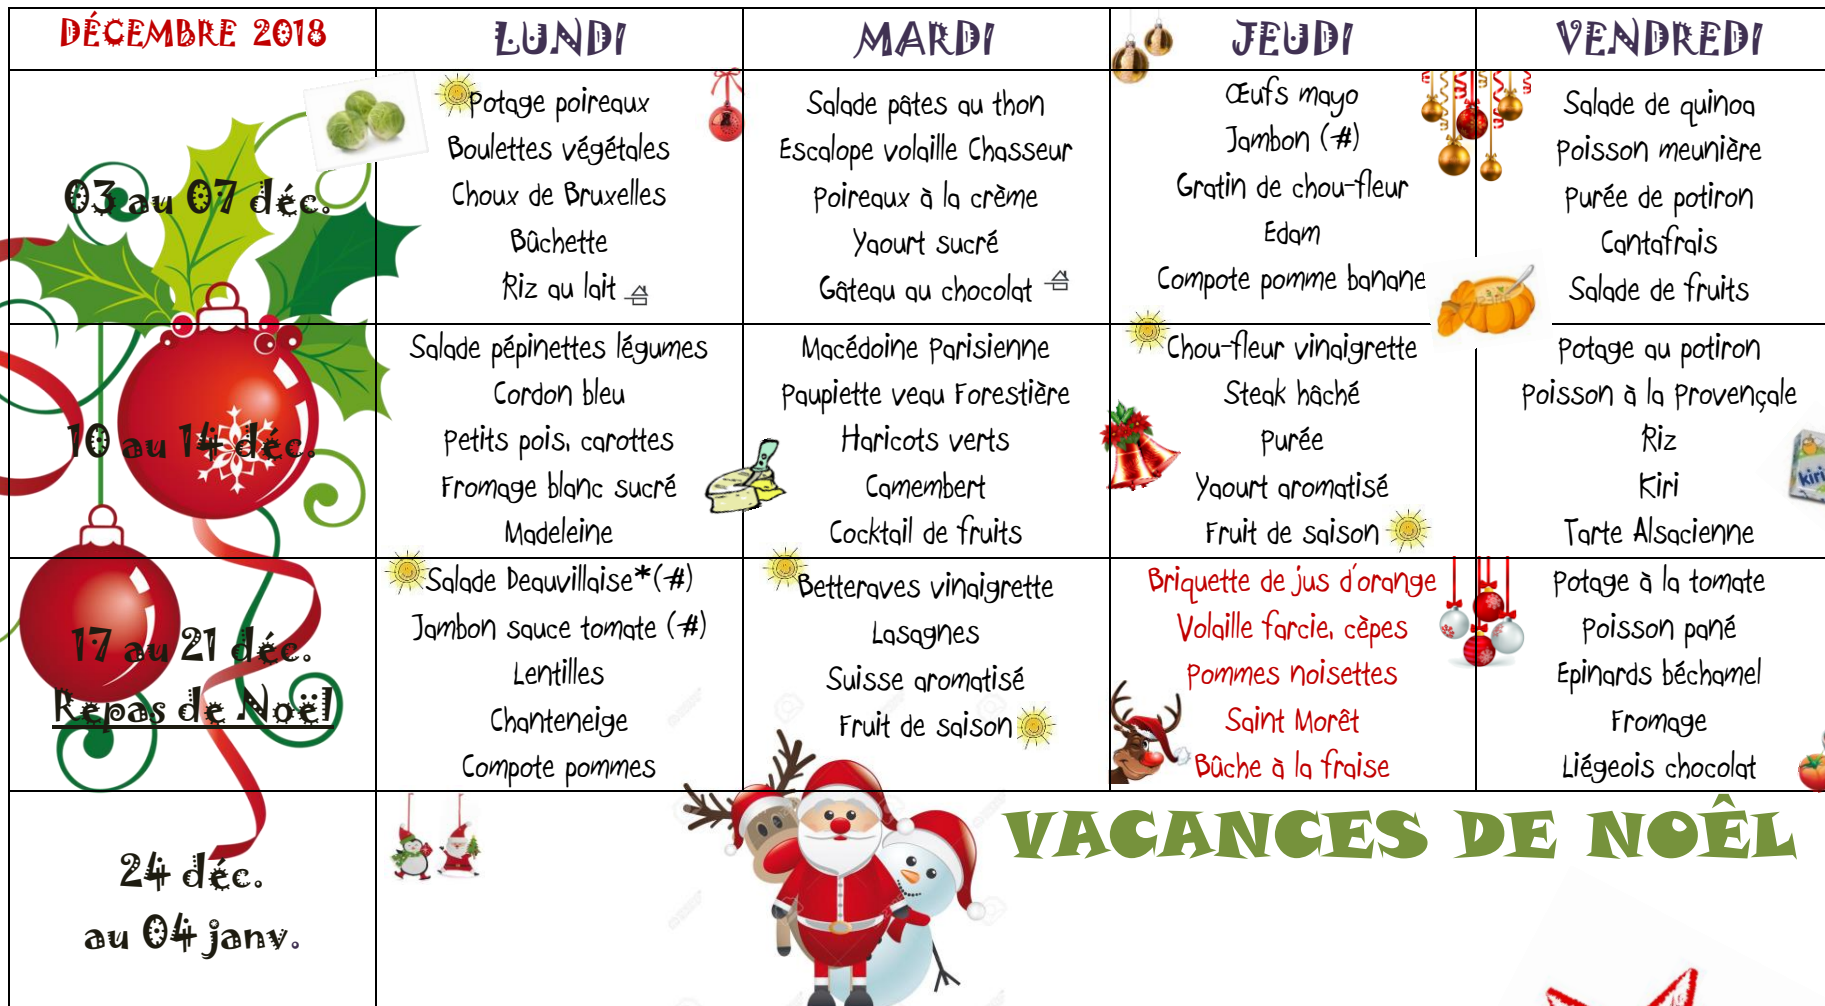 DÉCEMBRE 2018
LUNDI
MARDI
JEUDI
VENDREDI
03 au 07 déc.
Potage poireaux
Boulettes végétales
Choux de Bruxelles
Bûchette
Riz au lait
Salade pâtes au thon
Escalope volaille Chasseur
Poireaux à la crème
Yaourt sucré
Gâteau au chocolat
Œufs mayo
Jambon (#)
Gratin de chou-fleur
Edam
Compote pomme banane
Salade de quinoa
Poisson meunière
Purée de potiron
Cantafrais
Salade de fruits
10 au 14 déc.
Salade pépinettes légumes
Cordon bleu
Petits pois, carottes
Fromage blanc sucré
Madeleine
Macédoine Parisienne
Paupiette veau Forestière
Haricots verts
Camembert
Cocktail de fruits
Chou-fleur vinaigrette
Steak hâché
Purée
Yaourt aromatisé
Fruit de saison
Potage au potiron
Poisson à la Provençale
Riz
Kiri
Tarte Alsacienne
kiri
17 au 21 déc.
Repas de Noël
Salade Deauvillaise*(#)
Jambon sauce tomate (#)
Lentilles
Chanteneige
Compote pommes
Betteraves vinaigrette
Lasagnes
Suisse aromatisé
Fruit de saison
Briquette de jus d'orange
Volaille farcie, cèpes
Pommes noisettes
Saint Morêt
Bûche à la fraise
Potage à la tomate
Poisson pané
Epinards béchamel
Fromage
Liégeois chocolat
24 déc.
au 04 janv.
VACANCES DE NOÊL